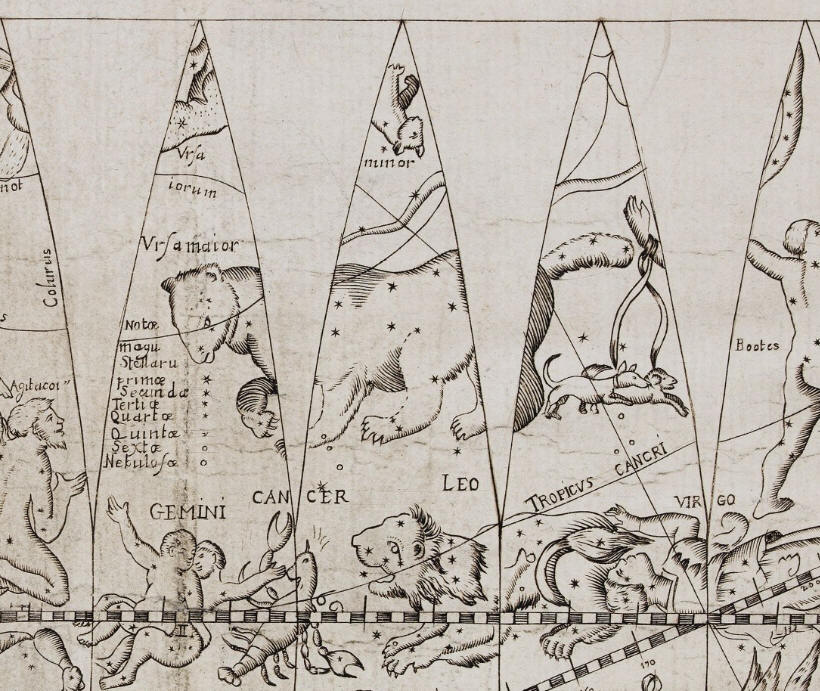 Vrsa
iorum
minor
not
Colurus
Vrsa maior
Notæ
magu
Stellaru
primæ
Secundæ
Tertiæ
Quartæ
Quintæ
Sextæ
Nebulosæ
Agitator
Bootes
GEMINI
CAN CER
LEO
TROPICVS CANCRI
VIR GO
II
170
200